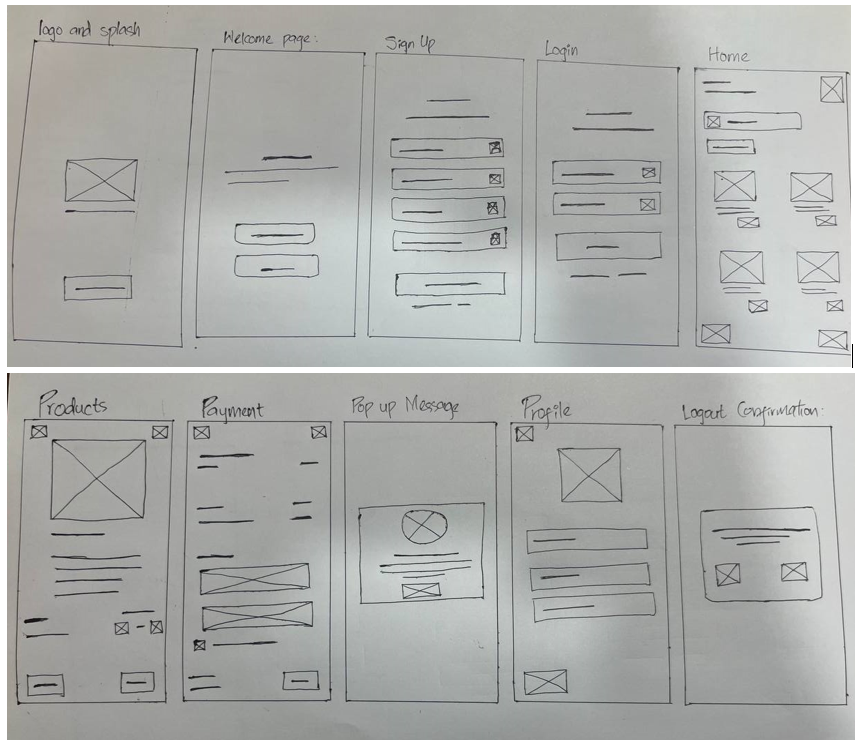 logo and splash
Welcome page:
Sign Up
Login
Home
Products
Payment
Pop up Message
Profile
Logout Confirmation: